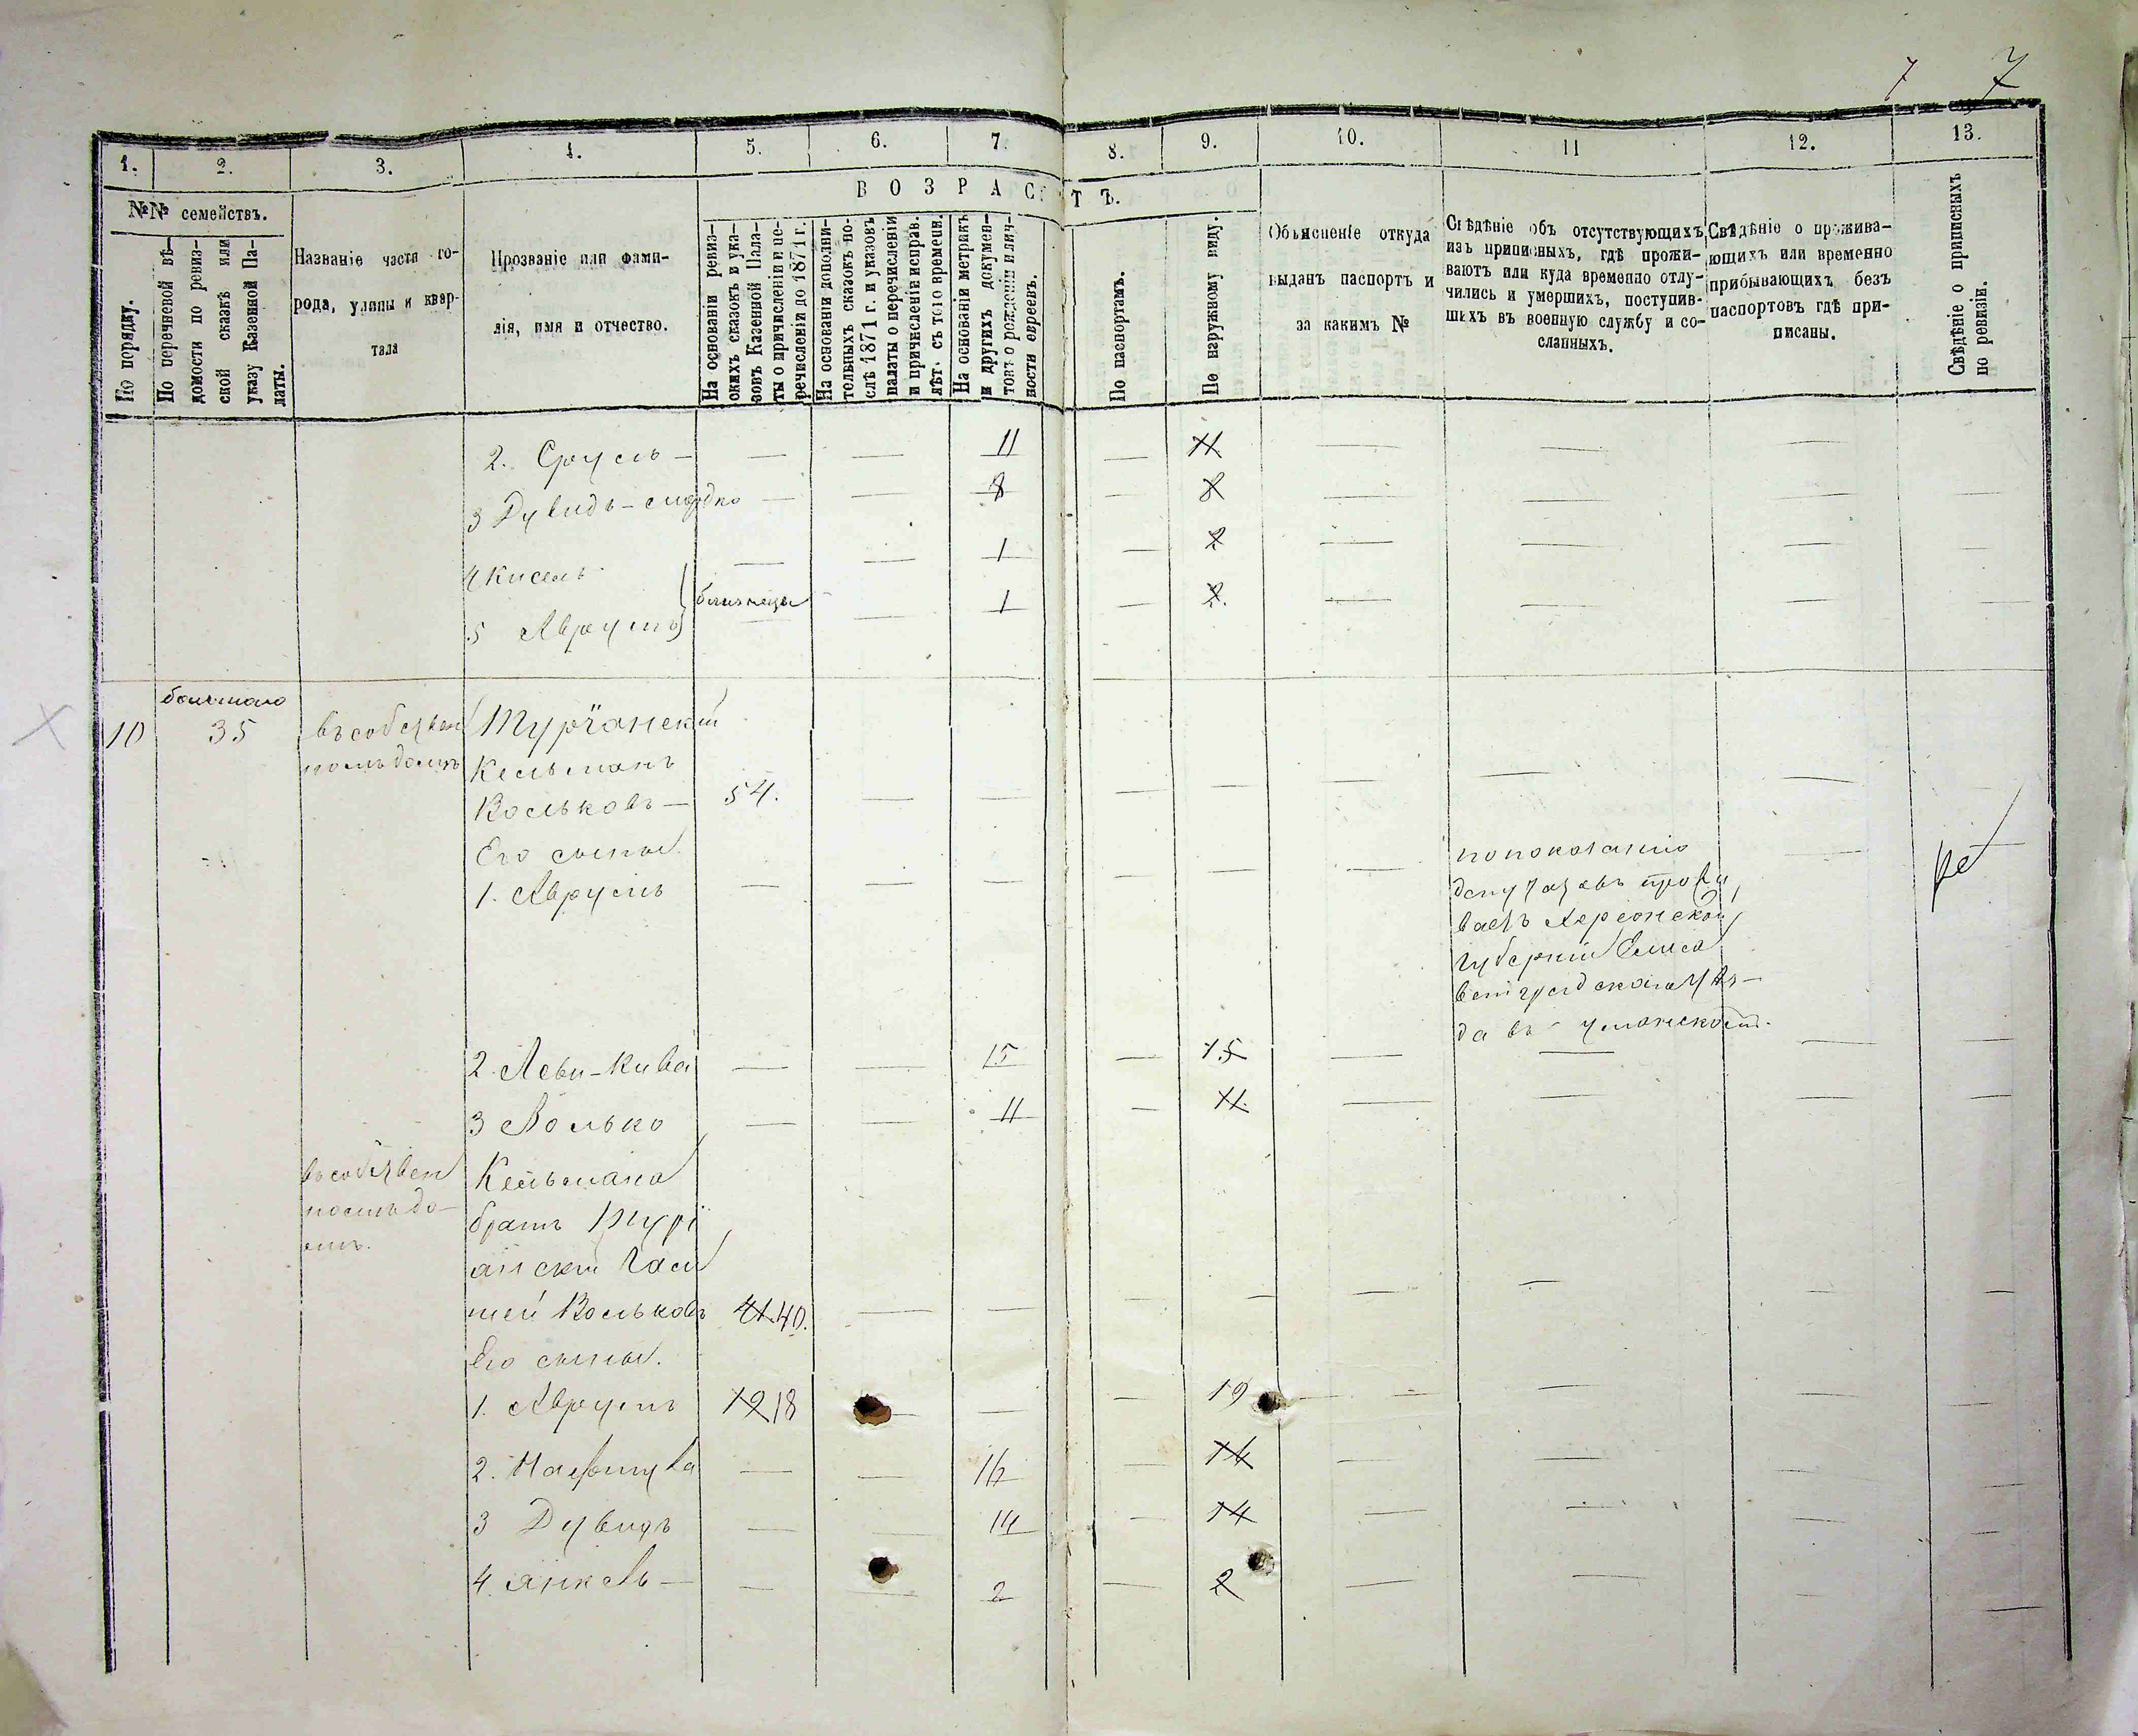 7 7
1. 2. 3. 4. 5. 6. 7. 8. 9. 10. 11 12. 13.
В О З Р А С Т Ъ.
№№ семействъ.
По порядку.
По перечневой вѣ-
домости по ревиз-
ской сказкѣ или
указу Казенной Па-
латы.
Названіе части го-
рода, улицы и квар-
тала
Прозваніе или фами-
лія, имя и отчество.
На основаніи ревиз-
скихъ сказокъ и ука-
зовъ Казенной Пала-
ты о причисленіи и пе-
речисленіи до 1871 г.
На основаніи дополни-
тельныхъ сказокъ по-
слѣ 1871 г. и указовъ
палаты о перечисленіи
и причисленіи исправ.
лѣт. съ того времени.
На основаніи метрикъ
и другихъ докумен-
товъ о рожденіи и лич-
ности евреевъ.
По паспортамъ.
По наружному виду.
Объясненіе откуда
выданъ паспортъ и
за какимъ №
Свѣдѣніе объ отсутствующихъ
изъ приписныхъ, гдѣ прожи-
ваютъ или куда временно отлу-
чились и умершихъ, поступив-
шихъ въ военную службу и со-
сланныхъ.
Свѣдѣніе о прожива-
ющихъ или временно
прибывающихъ безъ
паспортовъ гдѣ при-
писаны.
Свѣдѣніе о приписныхъ
по ревизіи.
2. Сруль — — — 11 — 11 — — —
3 Дувидъ- — — 8 — 8 — — — —
4 Кисель — — 1 — 2 — — — —
близнецы
5 Аврумъ — 1 — 2. — — — —
10 35 въ собствен
номъ домѣ
Кельманъ
Вольковъ — 54. — — — — — — —
Его сыны
1. Аврумъ — — — — — —
по показанію
депутатовъ прожи
ваетъ Херсонской
губерніи Елиса
ветградскаго уѣз-
да въ
2. Леви-Кива — — 15 — 15 — — — —
3 Волько — — 11 — 11. — — — —
въ собствен
номъ до-
мѣ.
Кельмана
братъ
шей Вольковъ 41 40. — — — — — — — —
Его сыны.
1. Аврумъ 19 18 — — — 19 — — — —
2. — — 16 — 14 — — — —
3 Дувидъ — — 14 — 14 — — — —
4. Янкель — — — 2 — 2 — — — —